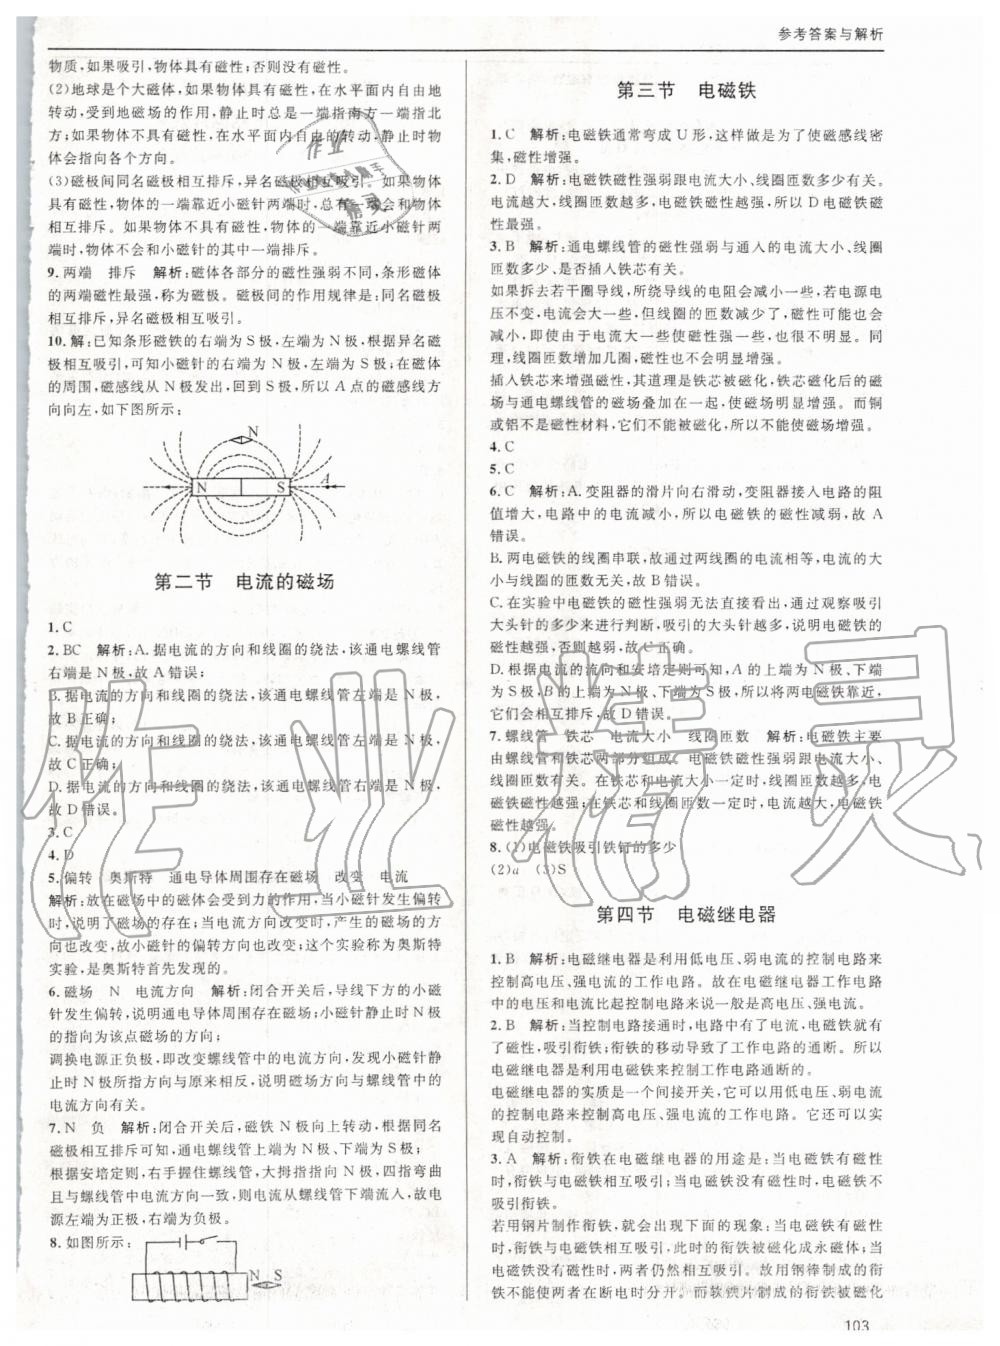 参考答案与解析
物质,如果吸引,物体具有磁性;否则没有磁性。
(2)地球是个大磁体,如果物体具有磁性,在水平面内自由地
转动,受到地磁场的作用,静止时总是一端指南方一端指北
方;如果物体不具有磁性,在水平面内自由的转动,静止时物
体会指向各个方向。
(3)磁极间同名磁极相互排斥,异名磁极相互吸引。如果物体
具有磁性,物体的一端靠近小磁针两端时,总有一端会和物体
相互排斥。如果物体不具有磁性,物体的一端靠近小磁针两
端时,物体不会和小磁针的其中一端排斥。
9.两端 排斥 解析:磁体各部分的磁性强弱不同,条形磁体
的两端磁性最强,称为磁极。磁极间的作用规律是:同名磁极
相互排斥,异名磁极相互吸引。
10.解:已知条形磁铁的右端为S极,左端为N极,根据异名磁
极相互吸引,可知小磁针的右端为N极,左端为S极;在磁体
的周围,磁感线从N极发出,回到S极,所以A点的磁感线方
向向左,如下图所示:
N
N S A
第二节 电流的磁场
1.C
2.BC 解析:A.据电流的方向和线圈的绕法,该通电螺线管
右端是N极,故A错误;
B.据电流的方向和线圈的绕法,该通电螺线管左端是N极,
故B正确;
C.据电流的方向和线圈的绕法,该通电螺线管左端是N极,
故C正确;
D.据电流的方向和线圈的绕法,该通电螺线管右端是N极,
故D错误。
3.C
4.D
5.偏转 奥斯特 通电导体周围存在磁场 改变 电流
解析:放在磁场中的磁体会受到力的作用,当小磁针发生偏转
时,说明了磁场的存在;当电流方向改变时,产生的磁场的方
向也改变,故小磁针的偏转方向也改变;这个实验称为奥斯特
实验,是奥斯特首先发现的。
6.磁场 N 电流方向 解析:闭合开关后,导线下方的小磁
针发生偏转,说明通电导体周围存在磁场;小磁针静止时N极
的指向为该点磁场的方向;
调换电源正负极,即改变螺线管中的电流方向,发现小磁针静
止时N极所指方向与原来相反,说明磁场方向与螺线管中的
电流方向有关。
7.N 负 解析:闭合开关后,磁铁N极向上转动,根据同名
磁极相互排斥可知,通电螺线管上端为N极、下端为S极;
根据安培定则,右手握住螺线管,大拇指指向N极,四指弯曲
且与螺线管中电流方向一致,则电流从螺线管下端流入,故电
源左端为正极,右端为负极。
8.如图所示:
N S
第三节 电磁铁
1.C 解析:电磁铁通常弯成U形,这样做是为了使磁感线密
集,磁性增强。
2.D 解析:电磁铁磁性强弱跟电流大小、线圈匝数多少有关。
电流越大,线圈匝数越多,电磁铁磁性越强,所以D电磁铁磁
性最强。
3.B 解析:通电螺线管的磁性强弱与通入的电流大小、线圈
匝数多少、是否插入铁芯有关。
如果拆去若干圈导线,所绕导线的电阻会减小一些,若电源电
压不变,电流会大一些,但线圈的匝数减少了,磁性可能也会
减小,即使由于电流大一些使磁性强一些,也很不明显。同
理,线圈匝数增加几圈,磁性也不会明显增强。
插入铁芯来增强磁性,其道理是铁芯被磁化,铁芯磁化后的磁
场与通电螺线管的磁场叠加在一起,使磁场明显增强。而铜
或铝不是磁性材料,它们不能被磁化,所以不能使磁场增强。
4.C
5.C
6.C 解析:A.变阻器的滑片向右滑动,变阻器接入电路的阻
值增大,电路中的电流减小,所以电磁铁的磁性减弱,故A
错误。
B.两电磁铁的线圈串联,故通过两线圈的电流相等,电流的大
小与线圈的匝数无关,故B错误。
C.在实验中电磁铁的磁性强弱无法直接看出,通过观察吸引
大头针的多少来进行判断,吸引的大头针越多,说明电磁铁的
磁性越强,否则越弱,故C正确。
D.根据电流的流向和安培定则可知,A的上端为N极、下端
为S极,B的上端为N极、下端为S极,所以将两电磁铁靠近,
它们会相互排斥,故D错误。
7.螺线管 铁芯 电流大小 线圈匝数 解析:电磁铁主要
由螺线管和铁芯两部分组成。电磁铁磁性强弱跟电流大小、
线圈匝数有关。在铁芯和电流大小一定时,线圈匝数越多,电
磁铁磁性越强;在铁芯和线圈匝数一定时,电流越大,电磁铁
磁性越强。
8.(1)电磁铁吸引铁钉的多少
(2)a (3)S
第四节 电磁继电器
1.B 解析:电磁继电器是利用低电压、弱电流的控制电路来
控制高电压、强电流的工作电路。故在电磁继电器工作电路
中的电压和电流比起控制电路来说一般是高电压、强电流。
2.B 解析:当控制电路接通时,电路中有了电流,电磁铁就有
了磁性,吸引衔铁;衔铁的移动导致了工作电路的通断。所以
电磁继电器是利用电磁铁来控制工作电路通断的。
电磁继电器的实质是一个间接开关,它可以用低电压、弱电流
的控制电路来控制高电压、强电流的工作电路。它还可以实
现自动控制。
3.A 解析:衔铁在电磁继电器的用途是:当电磁铁有磁性
时,衔铁与电磁铁相互吸引;当电磁铁没有磁性时,电磁铁不
吸引衔铁。
若用钢片制作衔铁,就会出现下面的现象:当电磁铁有磁性
时,衔铁与电磁铁相互吸引,此时的衔铁被磁化成永磁体;当
电磁铁没有磁性时,两者仍然相互吸引。故用钢棒制成的衔
铁不能使两者在断电时分开。而软铁片制成的衔铁被磁化
103
作业精灵